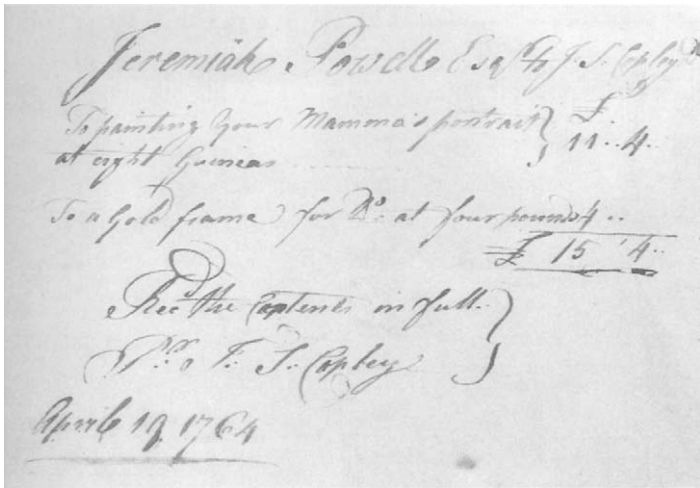 Jeremiah Powell Esqr to J. S. Copley Dr
To painting your Mamma's portrait } £
at eight Guineas 11 .. 4 ..
To a Gold frame for Do. at four pounds 4 ..
£ 15 .. 4 ..
Recd the Contents in full.
Pr. J. S. Copley
April 19 1764